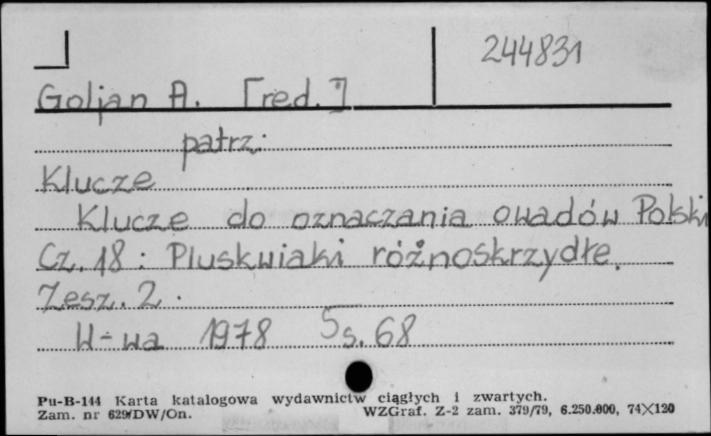 244831
Goljan A. [red.]
patrz:
Klucze
Klucze do oznaczania owadów Polski
Cz. 18 : Pluskwiaki różnoskrzydłe.
Zesz. 2.
W-wa 1978 s. 68
Pu-B-144 Karta katalogowa wydawnictw ciągłych i zwartych.
Zam. nr 629/DW/On. WZGraf. Z-2 zam. 379/79, 6.250.000, 74X120